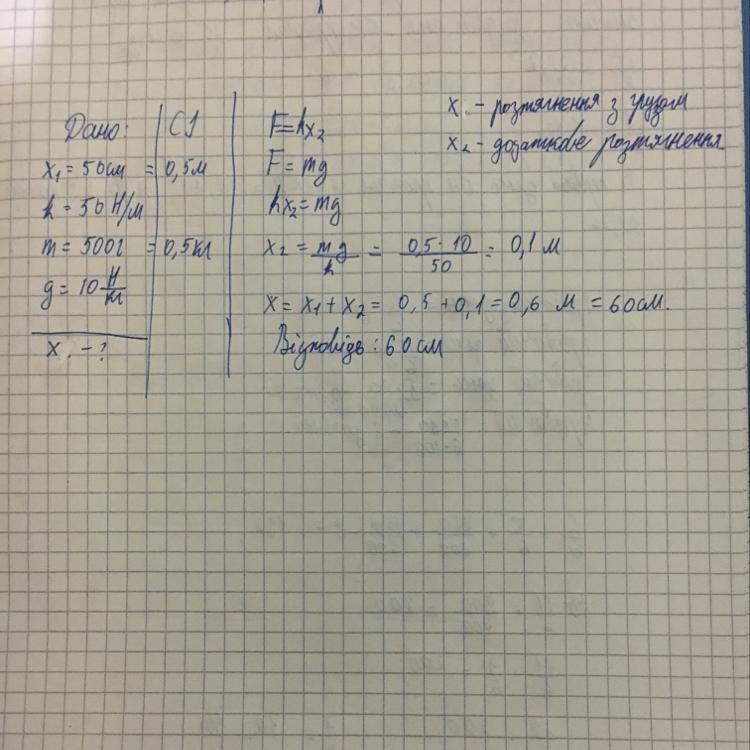 Дано:
СІ
x₁ = 50см = 0,5м
k = 50 Н/м
m = 500г = 0,5кг
g = 10 Н/кг
x - ?
F = kx₂
F = mg
kx₂ = mg
x₂ = mg/k = 0,5·10/50 = 0,1 м
x = x₁ + x₂ = 0,5 + 0,1 = 0,6 м = 60см.
Відповідь: 60см
x - розтягнення з грузом
x₂ - додаткове розтягнення